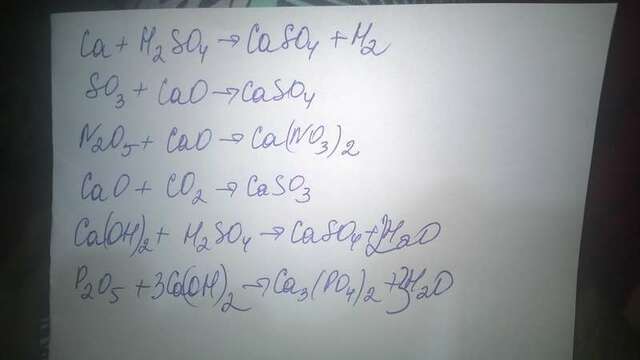 Ca + H₂SO₄ → CaSO₄ + H₂
SO₃ + CaO → CaSO₄
N₂O₅ + CaO → Ca(NO₃)₂
CaO + CO₂ → CaSO₃
Ca(OH)₂ + H₂SO₄ → CaSO₄ + 2H₂O
P₂O₅ + 3Ca(OH)₂ → Ca₃(PO₄)₂ + 3H₂O